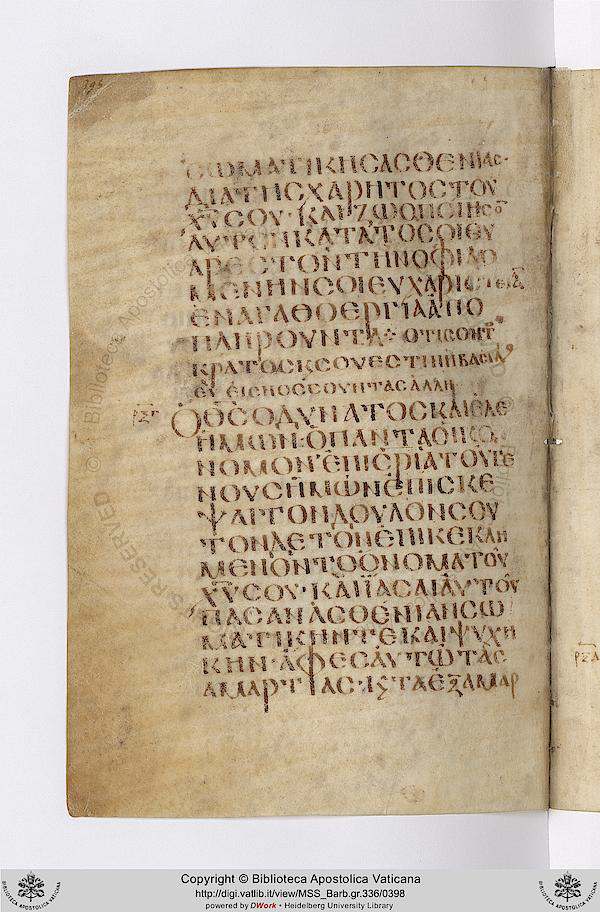 ΣΩΜΑΤΙΚΗΣ ΑΣΘΕΝΙΑΣ·
ΔΙΑ ΤΗΣ ΧΑΡΗΤΟΣ ΤΟΥ
ΧΥ ΣΟΥ· ΚΑΙ ΖΩΟΠΟΙΗΣΟ
ΑΥΤΟΝ ΚΑΤΑ ΤΟ ΣΟΙ ΕΥ
ΑΡΕΣΤΟΝ ΤΗΝ ΟΦΙΛΟ
ΜΕΝΗΝ ΣΟΙ ΕΥΧΑΡΙΣΤΕΙΑ
ΕΝ ΑΓΑΘΟΕΡΓΙΑ ΑΠΟ
ΠΛΗΡΟΥΝΤΑ· ΟΤΙ ΣΟΝ Τ
ΚΡΑΤΟΣ Κ ΣΟΥ ΕΣΤΙΝ Η ΒΑΣΙΛ
ΡΞΓ
Ο ΘΣ Ο ΔΥΝΑΤΟΣ ΚΑΙ ΕΛΕ
ΗΜΩΝ· Ο ΠΑΝΤΑ ΟΙΚΟ
ΝΟΜΟΝ ΕΠΙ ΣΡΙΑ ΤΟΥ ΓΕ
ΝΟΥΣ ΗΜΩΝ ΕΠΙΣΚΕ
ΨΑΙ ΤΟΝ ΔΟΥΛΟΝ ΣΟΥ
ΤΟΝΔΕ ΤΟΝ ΕΠΙΚΕΚΛΗ
ΜΕΝΟΝ ΤΟ ΟΝΟΜΑ ΤΟΥ
ΧΥ ΣΟΥ· ΚΑΙ ΙΑΣΑΙ ΑΥΤΟΥ
ΠΑΣΑΝ ΑΣΘΕΝΙΑΝ ΣΩ
ΜΑΤΙΚΗΝ ΤΕ ΚΑΙ ΨΥΧΗ
ΚΗΝ· ΑΦΕΣ ΑΥΤΩ ΤΑΣ
ΑΜΑΡΤΙΑΣ· ΚΣ ΤΑ ΕΞ ΑΜΑΡ
Copyright © Biblioteca Apostolica Vaticana
http://digi.vatlib.it/view/MSS_Barb.gr.336/0398
powered by DWork • Heidelberg University Library